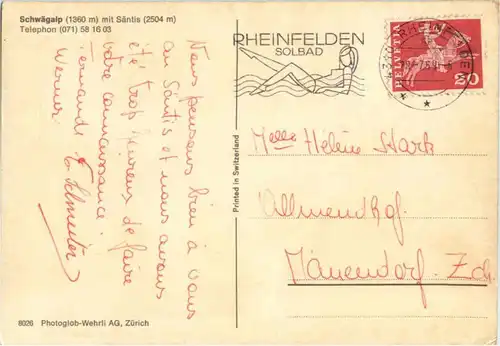 Schwägalp (1360 m) mit Säntis (2504 m)
Telephon (071) 58 16 03
Nous pensons bien à vous
au Säntis et nous avons
été trop heureux de faire
votre connaissance.
Fernande
Werner
8026 Photoglob-Wehrli AG, Zürich
Printed in Switzerland
RHEINFELDEN
SOLBAD
HELVETIA
Melle Helene Stark
Allmendhof.
Mänendorf. Zch.